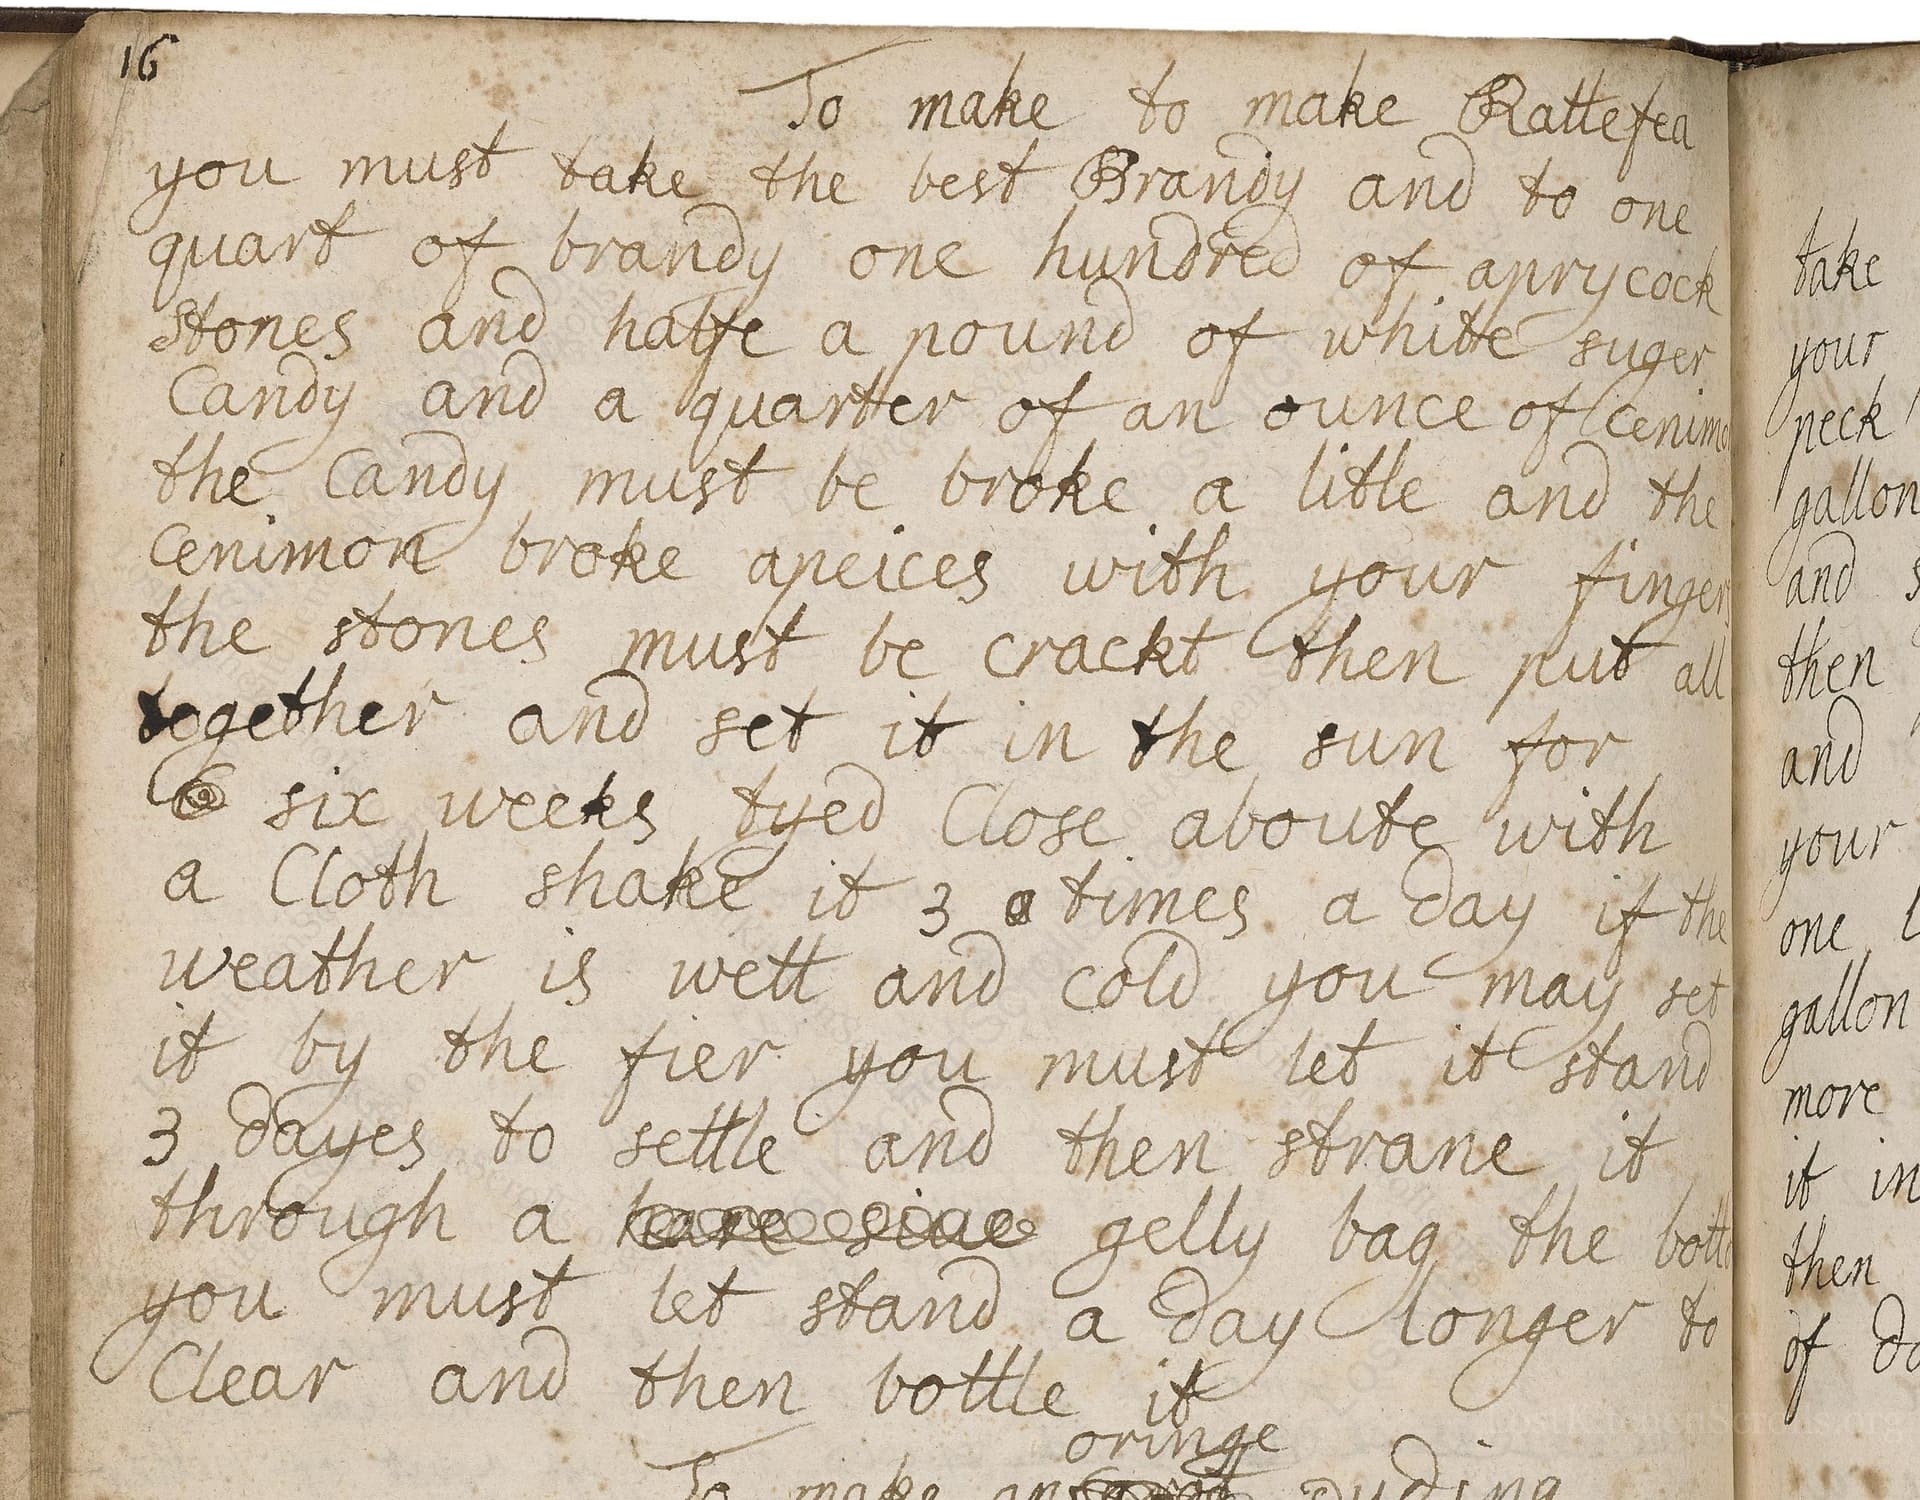 16
To make to make Rattefea
you must take the best Brandy and to one
quart of brandy one hundred of aprycock
stones and halfe a pound of white suger
Candy and a quarter of an ounce of Cenimo
the Candy must be broke a litle and the
Cenimon broke apeices with your fingers
the stones must be crackt then put all
together and set it in the sun for
six weeks tyed Close aboute with
a Cloth shake it 3 times a day if the
weather is wett and cold you may set
it by the fier you must let it stand
3 dayes to settle and then strane it
through a hare siue gelly bag the botto
you must let stand a day longer to
Clear and then bottle it
oringe
To make an puding
take
your
peck
gallon
and s
then
and
your
one
gallon
more
it in
then
of do